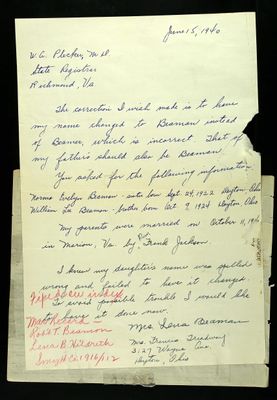 June 15, 1940
W. A. Plecker, M.D.
State Registrar
Richmond, Va
The correction I wish made is to have
my name changed to Beaman instead
of Beamer, which is incorrect. That of
my father's should also be Beaman.
You asked for the following information.
Norma Evelyn Beaman - sister born Sept. 24, 1922 Dayton, Ohio
William Beaman - brother born Oct. 9, 1924 Dayton, Ohio
My parents were married on October 11, 1916
in Marion, Va. by Frank Jackson.
I knew my daughter's name was spelled
wrong and failed to have it changed.
To avoid possible trouble I would like
to have it done now.
Mrs Lena Beaman
Mrs Frances Treadway
3127 Wayne Ave.
Dayton, Ohio
Mar Record —
Robt T. Beamon
Lena B. Hildreth
Smyth Co. 1916/12